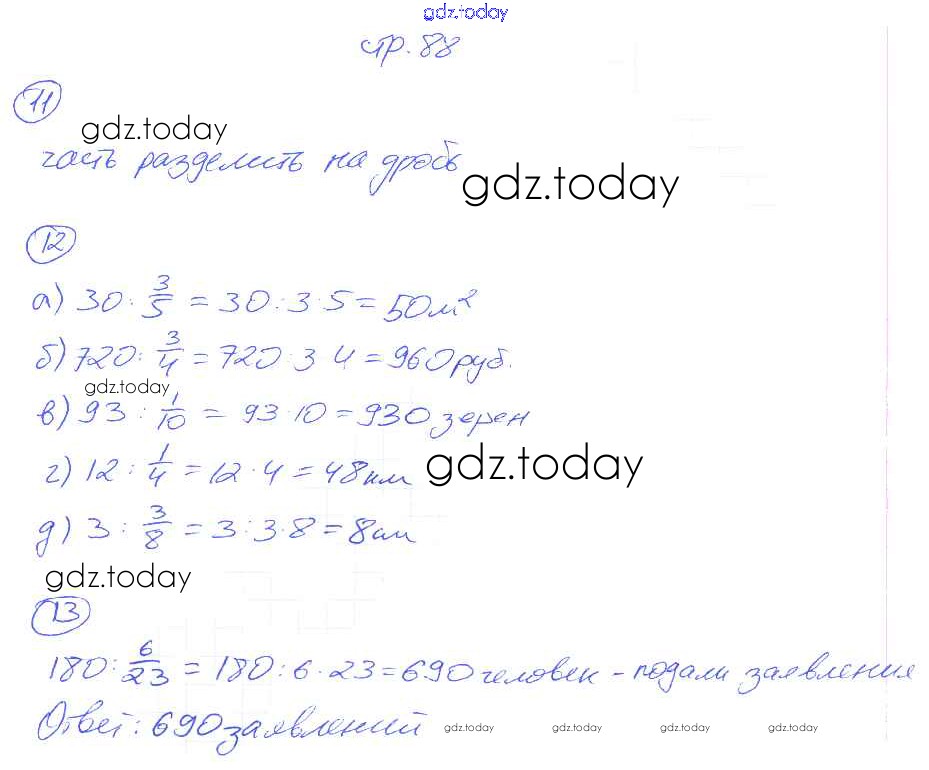 gdz.today
стр. 88
11
gdz.today
часть разделить на дробь
gdz.today
12
а) 30 : 3/5 = 30 : 3 · 5 = 50 м²
б) 720 : 3/4 = 720 : 3 · 4 = 960 руб.
gdz.today
в) 93 : 1/10 = 93 · 10 = 930 зерен
г) 12 : 1/4 = 12 · 4 = 48 км
gdz.today
д) 3 : 3/8 = 3 : 3 · 8 = 8 см
gdz.today
13
180 : 6/23 = 180 : 6 · 23 = 690 человек - подали заявления
Ответ: 690 заявлений
gdz.today gdz.today gdz.today gdz.today